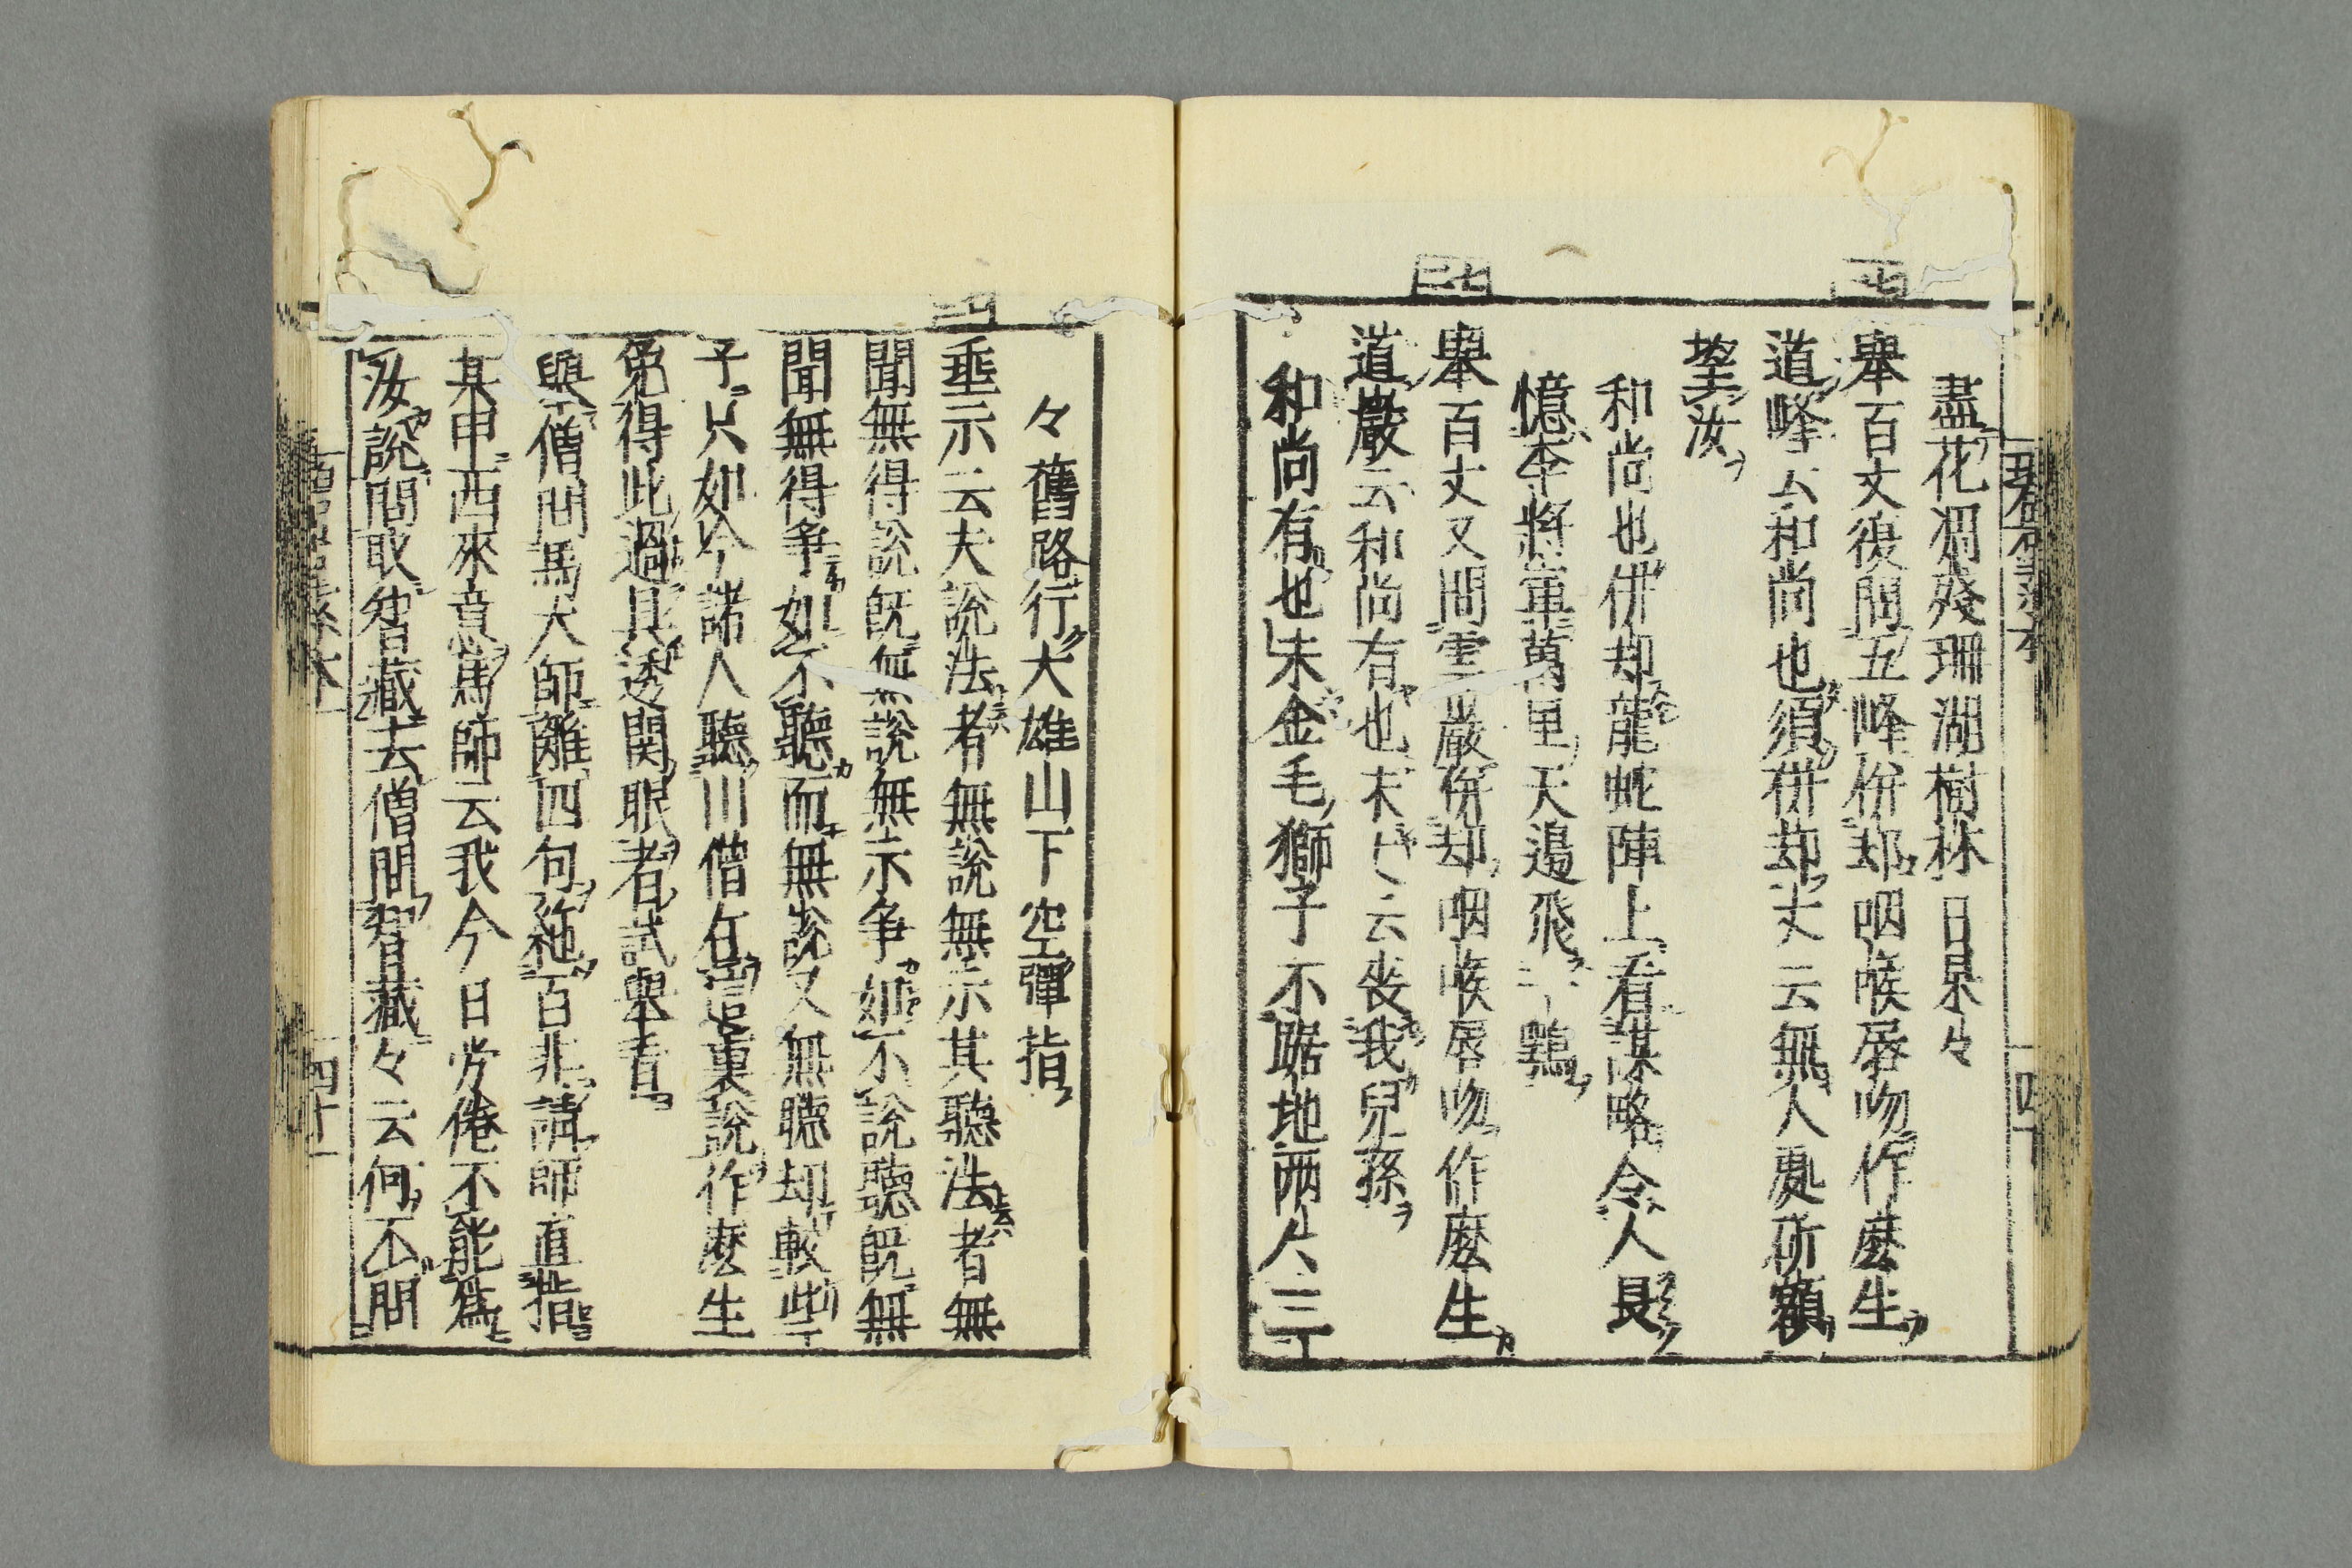 盡花凋殘珊瑚樹林日杲々
七一
舉百丈復問五峰併却咽喉唇吻作麼生
道峰云和尚也須併却丈云無人處斫額
望汝
和尚也併却龍蛇陣上看謀略令人長
憶李將軍萬里天邊飛一鶚
七二
舉百丈又問雲巖併却咽喉唇吻作麼生
道巖云和尚有也未丈云喪我兒孫
和尚有也未金毛獅子不踞地兩人三
々舊路行大雄山下空彈指
垂示云夫說法者無說無示其聽法者無
聞無得說既無說無示爭如不說聽既無
聞無得爭如不聽而無說又無聽却較些
子只如今諸人聽山僧在這裏說作麼生
免得此過具透関眼者試舉看
舉僧問馬大師離四句絕百非請師直指
某甲西來意馬師云我今日労倦不能為
汝說問取智藏去僧問智藏々云何不問
四十一